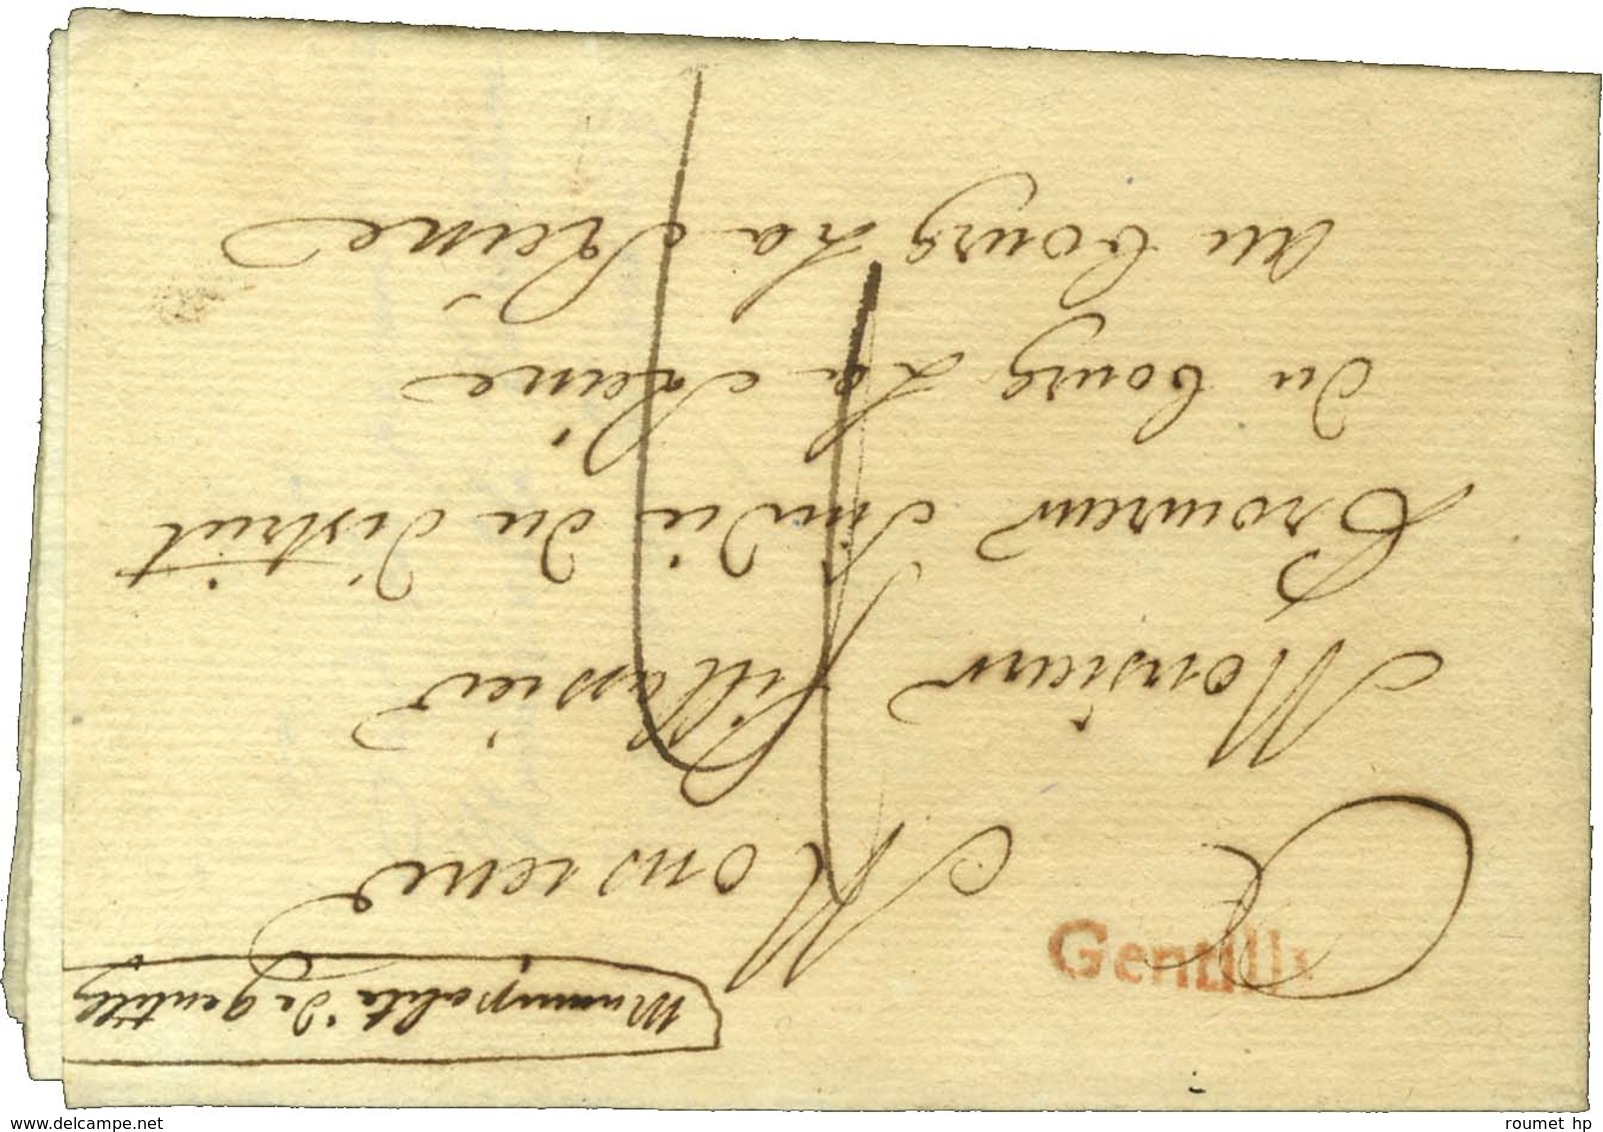 Municipalité de gentilly
Gentilly
A
Monsieur
Monsieur fillassier
Procureur sindic du district
du bourg La Reine
Au bourg La Reine
www.delcampe.net
roumet hp